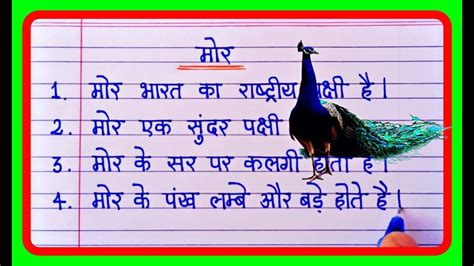 मोर
1. मोर भारत का राष्ट्रीय पक्षी है।
2. मोर एक सुंदर पक्षी
3. मोर के सर पर कलगी होती है।
4. मोर के पंख लम्बे और बड़े होते है।